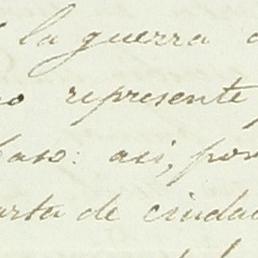 la guerra
no represente
caso: asi, por
carta de ciudad